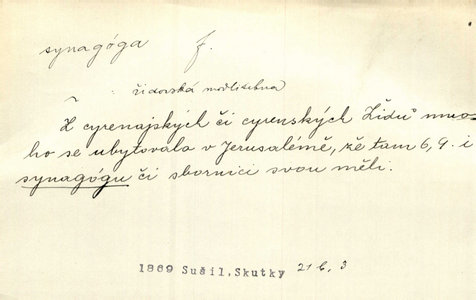 synagóga f.
židovská modlitebna
Z cyrenajských či cyrenských Židů mno-
ho se ubytovala v Jerusalémě, že tam 6, 9. i
synagógu či sbornici svou měli.
1869 Sušil, Skutky 3